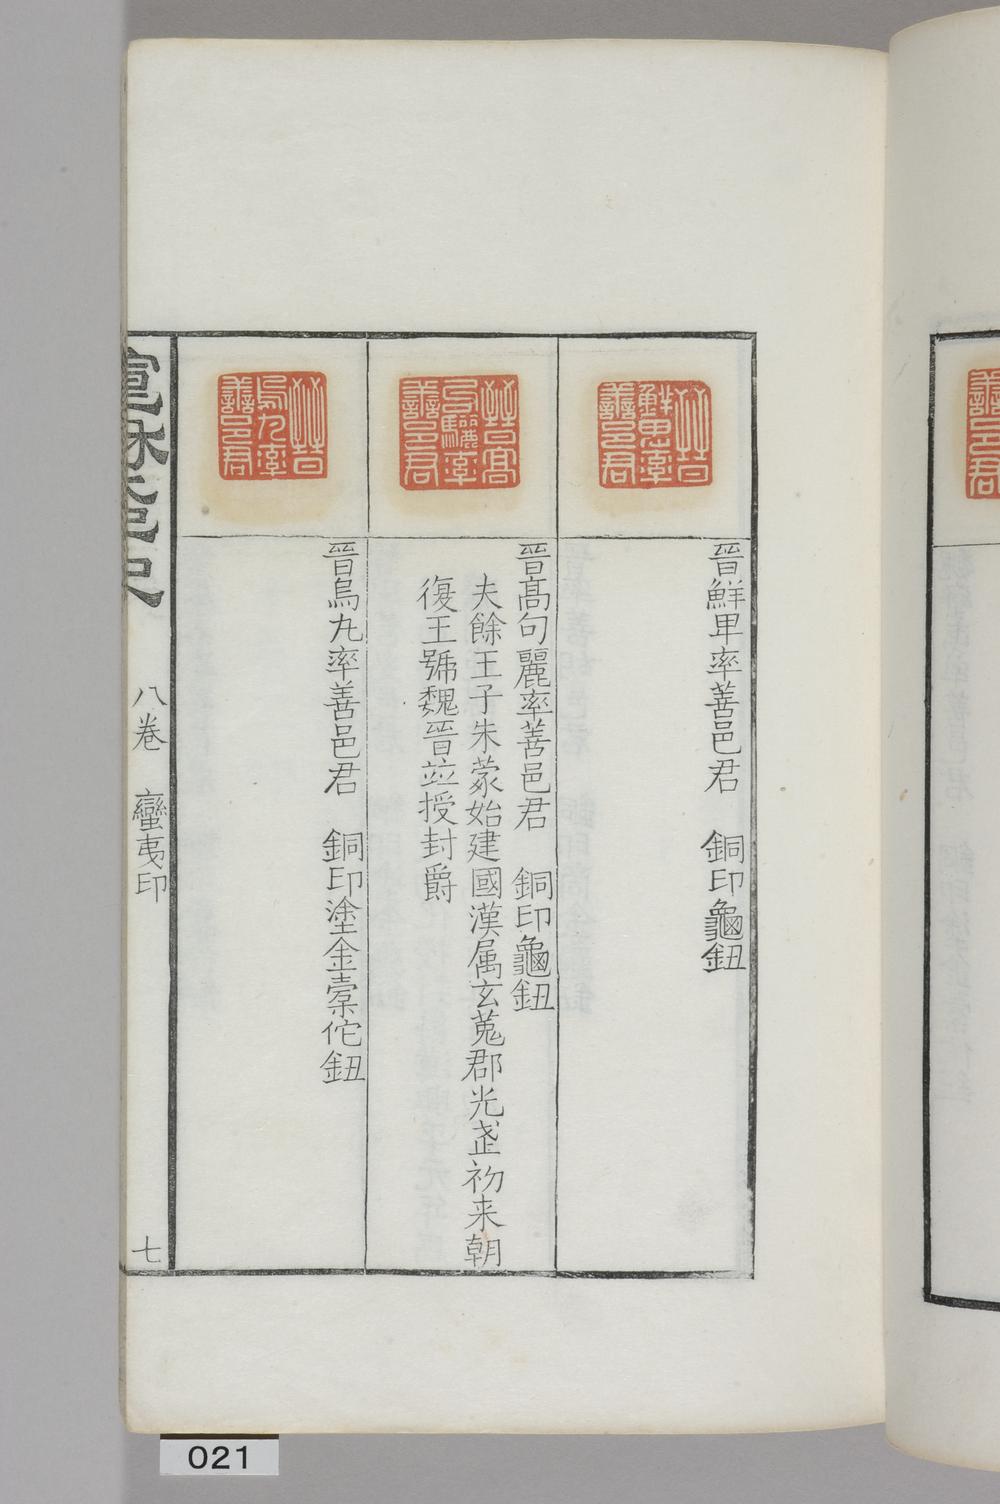 晉鮮卑率善邑君　銅印龜鈕
晉高句麗率善邑君　銅印龜鈕
夫餘王子朱蒙始建國漢属玄菟郡光武初来朝
復王號魏晉並授封爵
晉烏丸率善邑君　銅印塗金橐佗鈕
晉鮮卑率善邑君
晉高句驪率善邑君
晉烏丸率善邑君
宣和集古印史
八卷　蠻夷印
七
021